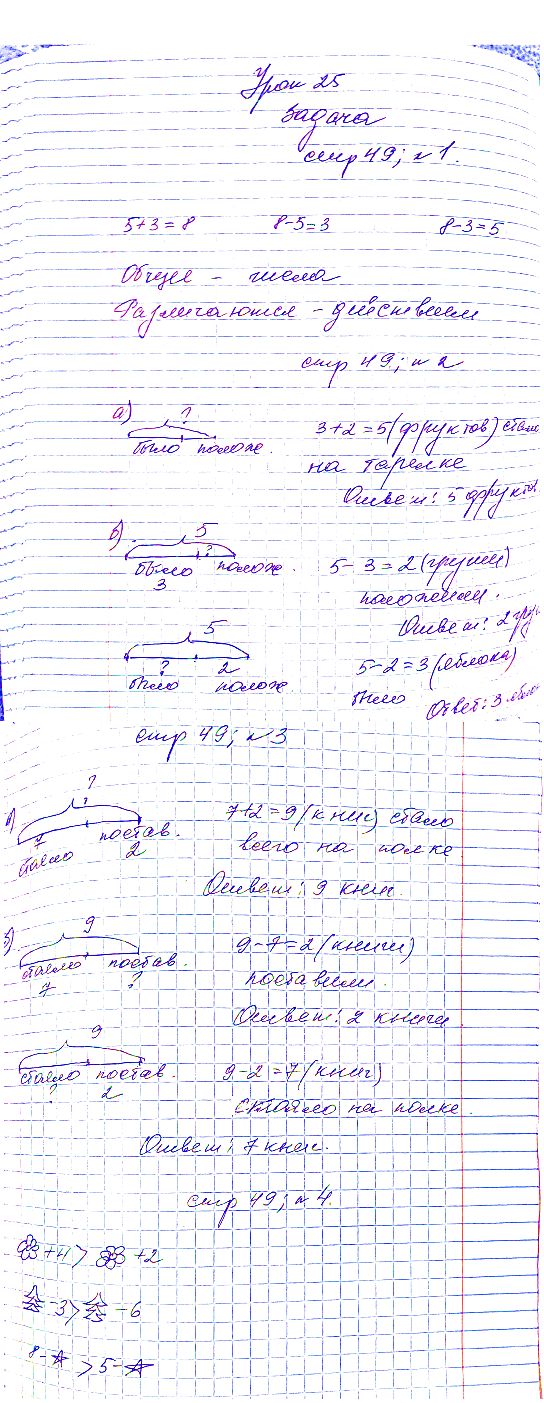 Урок 25
Задача
стр 49; №1.
5+3=8 8-5=3 8-3=5
Общее - числа
Различаются - действием
стр 49; №2
а) ?
было полож.
3+2=5(фруктов) стало
на тарелке
Ответ: 5 фрукт
б) 5
?
было полож.
3
5-3=2(груши)
положили.
Ответ: 2 гру
5
? 2
было полож
5-2=3(яблока)
было
Ответ: 3 ябло
стр 49; №3
?
7
стояло постав.
2
7+2=9(книг) стало
всего на полке
Ответ: 9 книг
9
стояло постав.
7 ?
9-7=2(книги)
поставили.
Ответ: 2 книги
9
стояло постав.
? 2
9-2=7(книг)
стояло на полке.
Ответ: 7 книг.
стр 49; №4.
+4> +2
-3> -6
8- >5-